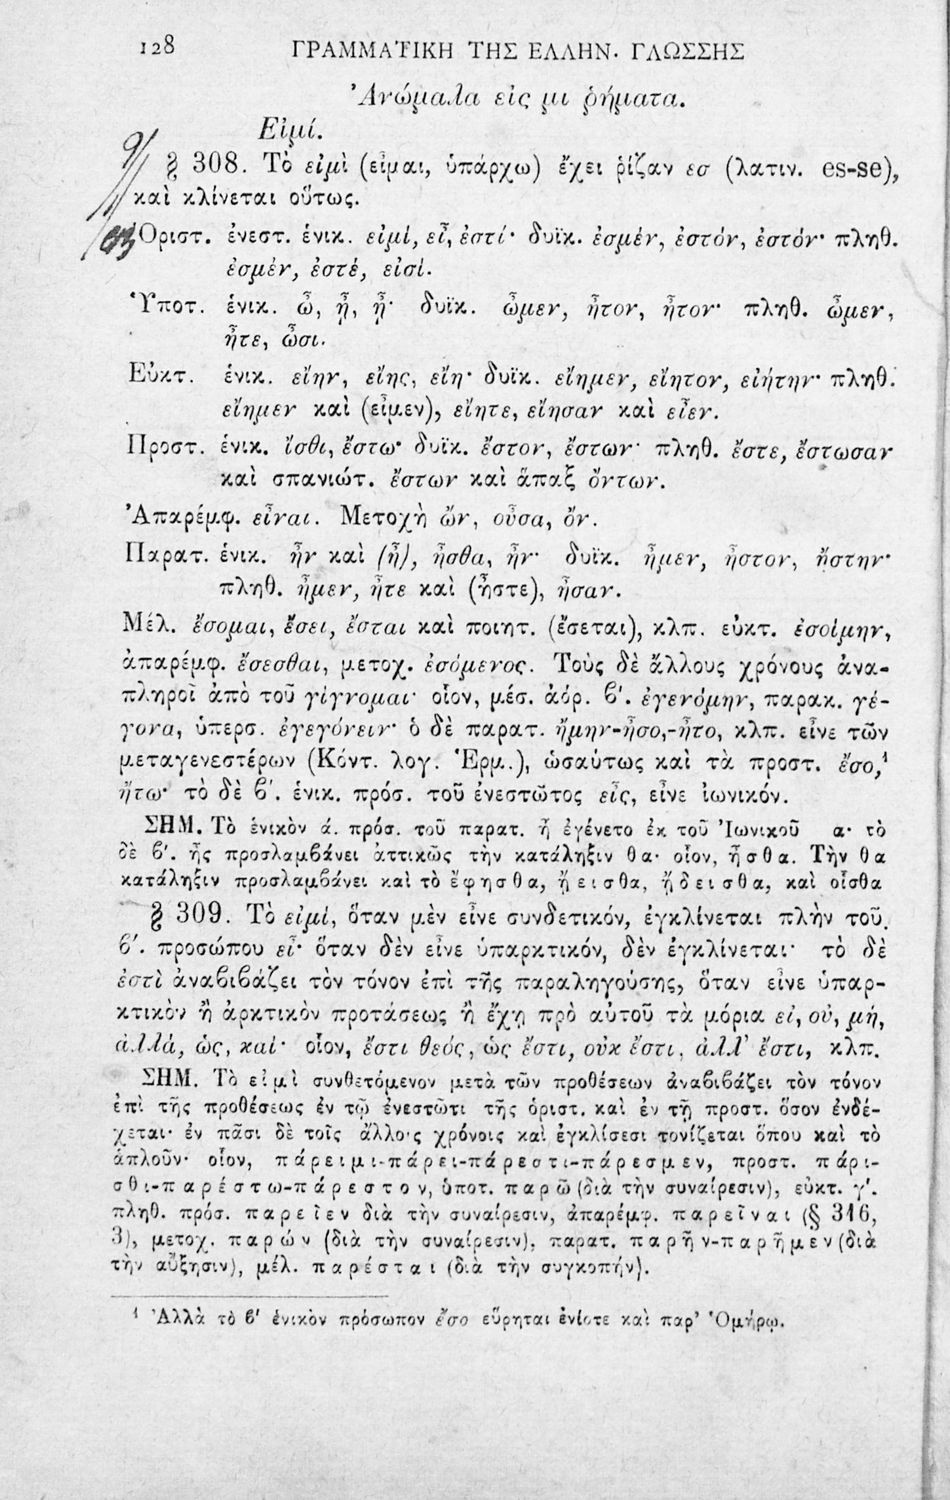 128 ΓΡΑΜΜΑΤΙΚΗ ΤΗΣ ΕΛΛΗΝ. ΓΛΩΣΣΗΣ
Ἀνώμαλα εἰς μι ῥήματα.
Εἰμί.
§ 308. Τὸ εἰμὶ (εἶμαι, ὑπάρχω) ἔχει ῥίζαν εσ (λατιν. es-se),
καὶ κλίνεται οὕτως.
Ὁριστ. ἐνεστ. ἑνικ. εἰμί, εἶ, ἐστί· δυϊκ. ἐσμέν, ἐστόν, ἐστόν· πληθ.
ἐσμέν, ἐστέ, εἰσί.
Ὑποτ. ἑνικ. ὦ, ᾖ, ᾖ· δυϊκ. ὦμεν, ἦτον, ἦτον· πληθ. ὦμεν,
ἦτε, ὦσι.
Εὐκτ. ἑνικ. εἴην, εἴης, εἴη· δυϊκ. εἴημεν, εἴητον, εἰήτην· πληθ.
εἴημεν καὶ (εἶμεν), εἴητε, εἴησαν καὶ εἶεν.
Προστ. ἑνικ. ἴσθι, ἔστω· δυϊκ. ἔστον, ἔστων· πληθ. ἔστε, ἔστωσαν
καὶ σπανιώτ. ἔστων καὶ ἅπαξ ὄντων.
Ἀπαρέμφ. εἶναι. Μετοχὴ ὤν, οὖσα, ὄν.
Παρατ. ἑνικ. ἦν καὶ (ἦ), ἦσθα, ἦν· δυϊκ. ἦμεν, ἦστον, ἤστην·
πληθ. ἦμεν, ἦτε καὶ (ἦστε), ἦσαν.
Μέλ. ἔσομαι, ἔσει, ἔσται καὶ ποιητ. (ἔσεται), κλπ. εὐκτ. ἐσοίμην,
ἀπαρέμφ. ἔσεσθαι, μετοχ. ἐσόμενος. Τοὺς δὲ ἄλλους χρόνους ἀνα-
πληροῖ ἀπὸ τοῦ γίγνομαι· οἷον, μέσ. ἀόρ. β'. ἐγενόμην, παρακ. γέ-
γονα, ὑπερσ. ἐγεγόνειν· ὁ δὲ παρατ. ἤμην-ἦσο,-ἦτο, κλπ. εἶνε τῶν
μεταγενεστέρων (Κόντ. λογ. Ἑρμ.), ὡσαύτως καὶ τὰ προστ. ἔσο,¹
ἤτω· τὸ δὲ β'. ἑνικ. πρόσ. τοῦ ἐνεστῶτος εἶς, εἶνε ἰωνικόν.
ΣΗΜ. Τὸ ἑνικὸν ά. πρόσ. τοῦ παρατ. ἦ ἐγένετο ἐκ τοῦ Ἰωνικοῦ α· τὸ
δὲ β'. ἦς προσλαμβάνει ἀττικῶς τὴν κατάληξιν θα· οἷον, ἦσθα. Τὴν θα
κατάληξιν προσλαμβάνει καὶ τὸ ἔφησθα, ᾔεισθα, ᾔδεισθα, καὶ οἶσθα
§ 309. Τὸ εἰμί, ὅταν μὲν εἶνε συνδετικόν, ἐγκλίνεται πλὴν τοῦ
β'. προσώπου εἶ· ὅταν δὲν εἶνε ὑπαρκτικόν, δὲν ἐγκλίνεται· τὸ δὲ
ἐστὶ ἀναβιβάζει τὸν τόνον ἐπὶ τῆς παραληγούσης, ὅταν εἶνε ὑπαρ-
κτικὸν ἢ ἀρκτικὸν προτάσεως ἢ ἔχῃ πρὸ αὐτοῦ τὰ μόρια εἰ, οὐ, μή,
ἀλλά, ὡς, καί· οἷον, ἔστι θεός, ὡς ἔστι, οὐκ ἔστι, ἀλλ' ἔστι, κλπ.
ΣΗΜ. Τὸ εἰμὶ συνθετόμενον μετὰ τῶν προθέσεων ἀναβιβάζει τὸν τόνον
ἐπὶ τῆς προθέσεως ἐν τῷ ἐνεστῶτι τῆς ὁριστ. καὶ ἐν τῇ προστ. ὅσον ἐνδέ-
χεται· ἐν πᾶσι δὲ τοῖς ἄλλοις χρόνοις καὶ ἐγκλίσεσι τονίζεται ὅπου καὶ τὸ
ἁπλοῦν· οἷον, πάρειμι-πάρει-πάρεστι-πάρεσμεν, προστ. πάρι-
σθι-παρέστω-πάρεστον, ὑποτ. παρῶ (διὰ τὴν συναίρεσιν), εὐκτ. γ'.
πληθ. πρόσ. παρεῖεν διὰ τὴν συναίρεσιν, ἀπαρέμφ. παρεῖναι (§ 316,
3), μετοχ. παρών (διὰ τὴν συναίρεσιν), παρατ. παρῆν-παρῆμεν (διὰ
τὴν αὔξησιν), μέλ. παρέσται (διὰ τὴν συγκοπήν).
¹ Ἀλλὰ τὸ β' ἑνικὸν πρόσωπον ἔσο εὕρηται ἐνίοτε καὶ παρ' Ὁμήρῳ.